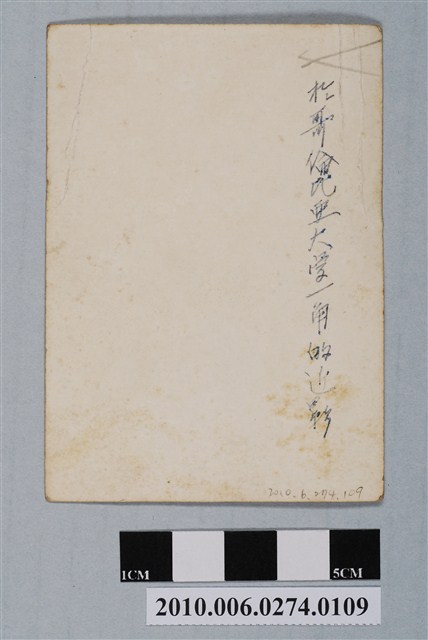 於哥倫比亞大学一角的近影
2010.6.274.109
1CM
5CM
2010.006.0274.0109